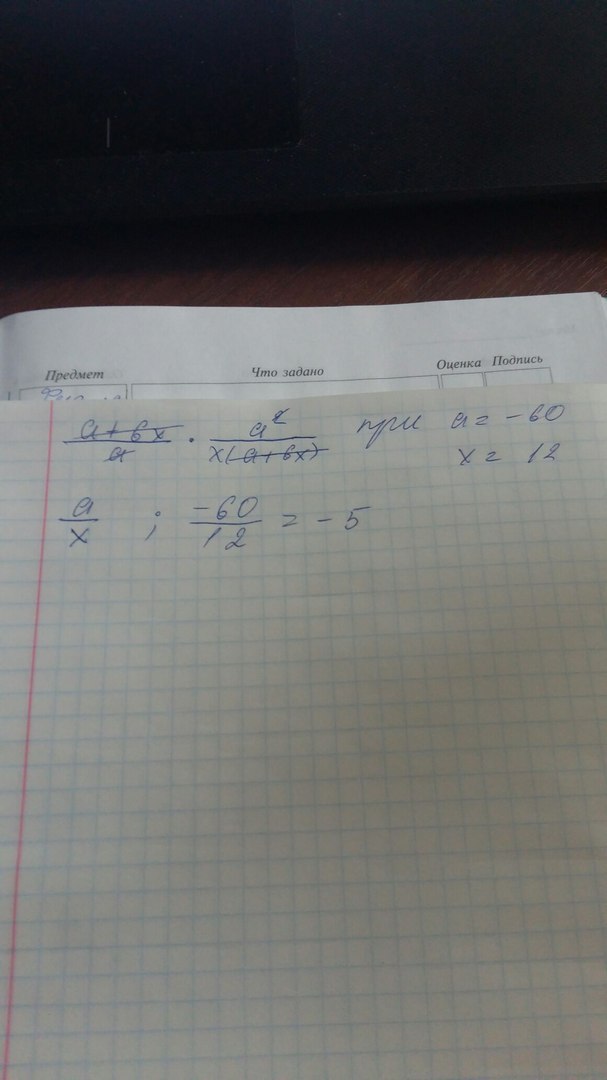 Предмет Что задано Оценка Подпись
(a+6x)/a · a²/(x(a+6x)) при a = -60
x = 12
a/x ; -60/12 = -5